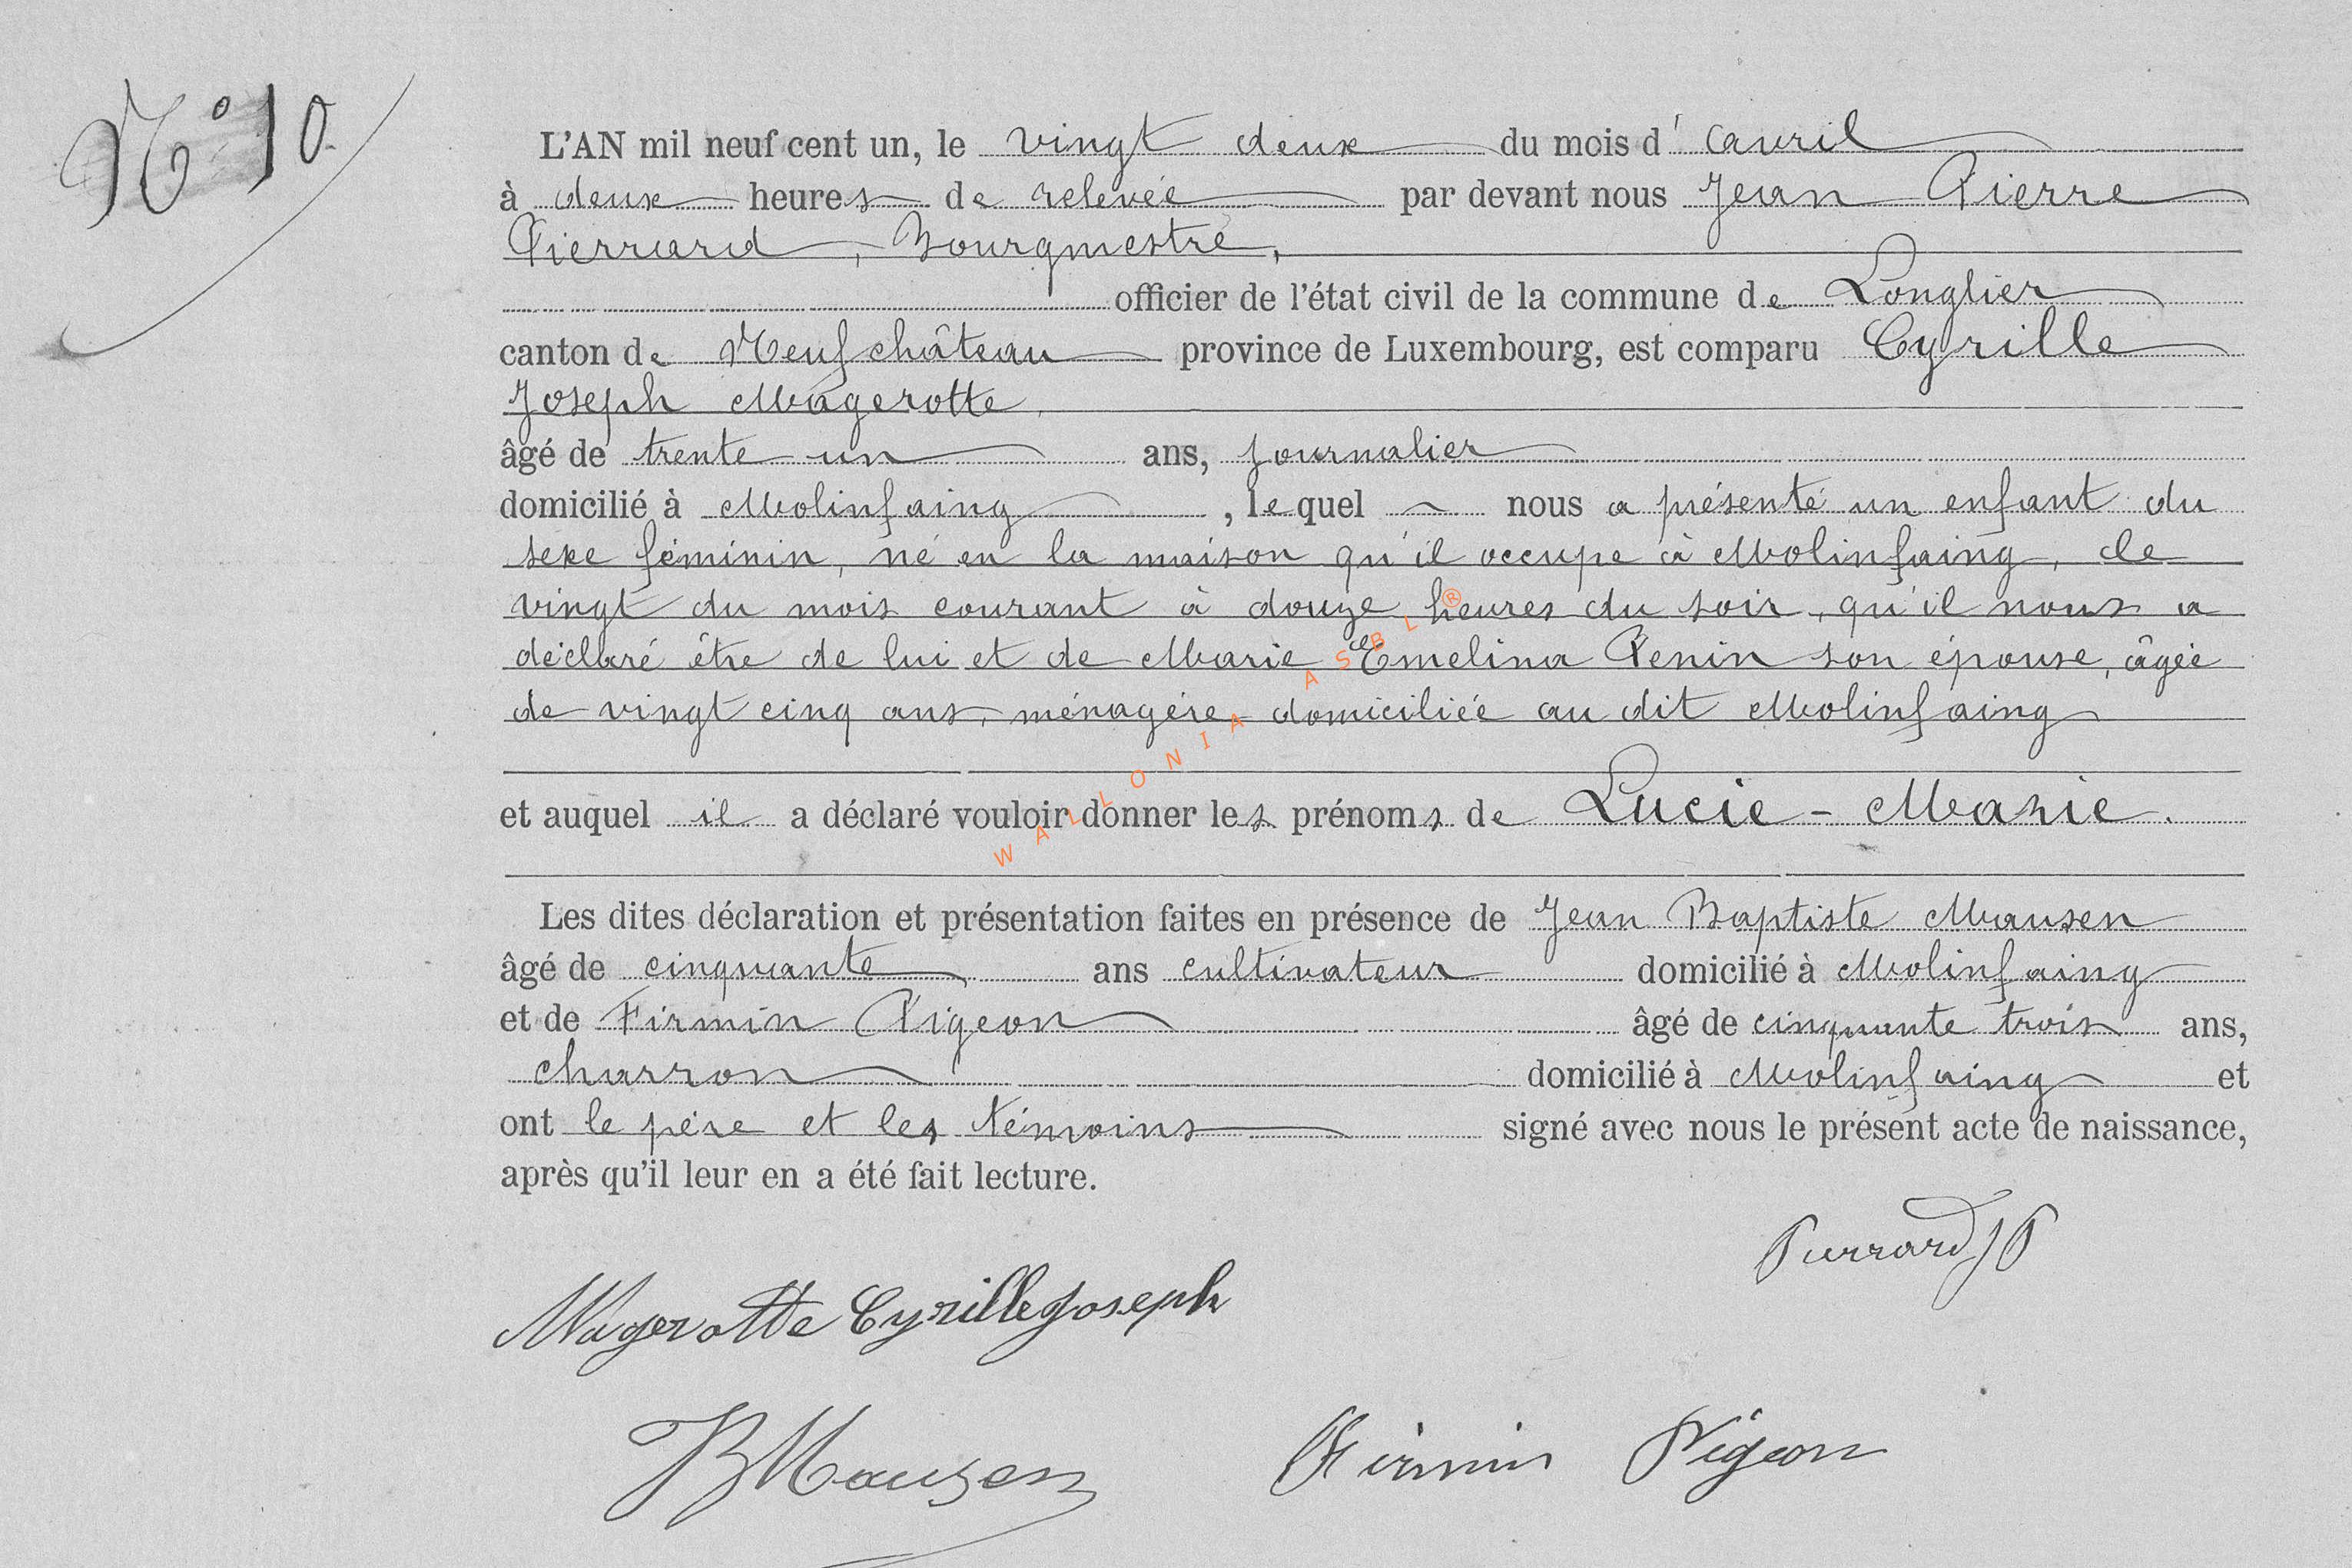 N° 10
L'AN mil neuf cent un, le vingt deux du mois d' avril
à deux heures de relevée par devant nous Jean Pierre
Pierrard, Bourgmestre,
officier de l'état civil de la commune de Longlier
canton de Neufchâteau province de Luxembourg, est comparu Cyrille
Joseph Magerotte,
âgé de trente un ans, journalier
domicilié à Molinfaing, lequel nous a présenté un enfant du
sexe féminin, né en la maison qu'il occupe à Molinfaing, le
vingt du mois courant à douze heures du soir, qu'il nous a
déclaré être de lui et de Marie Emelina Penin son épouse, âgée
de vingt cinq ans, ménagère domiciliée au dit Molinfaing
et auquel il a déclaré vouloir donner les prénoms de Lucie - Marie.
Les dites déclaration et présentation faites en présence de Jean Baptiste Mausen
âgé de cinquante ans cultivateur domicilié à Molinfaing
et de Firmin Pigeon âgé de cinquante trois ans,
charron domicilié à Molinfaing et
ont le père et les témoins signé avec nous le présent acte de naissance,
après qu'il leur en a été fait lecture.
Pierrard JP
Magerotte Cyrille Joseph
JB Mausen Firmin Pigeon
WALLONIA ASBL ®